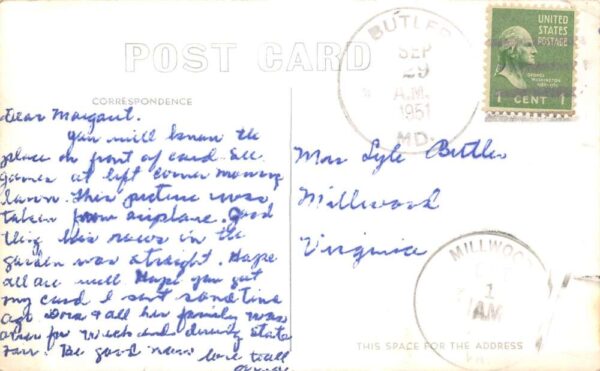 POST CARD
CORRESPONDENCE
BUTLER
SEP
29
A.M.
1951
MD.
UNITED
STATES
POSTAGE
GEORGE
WASHINGTON
1 CENT 1
Dear Margaret.
you will know the
place on front of card. See
James at left corner mowing
lawn. This picture was
taken from airplane. Good
thing his rows in the
garden was straight. Hope
all are well Hope you got
my card I sent sometime
ago Dora & all her family was
over for week end during State
Fair. Be good now love to all
Mrs Lyle Butler
Millwood
Virginia
MILLWOO
1
AM
THIS SPACE FOR THE ADDRESS